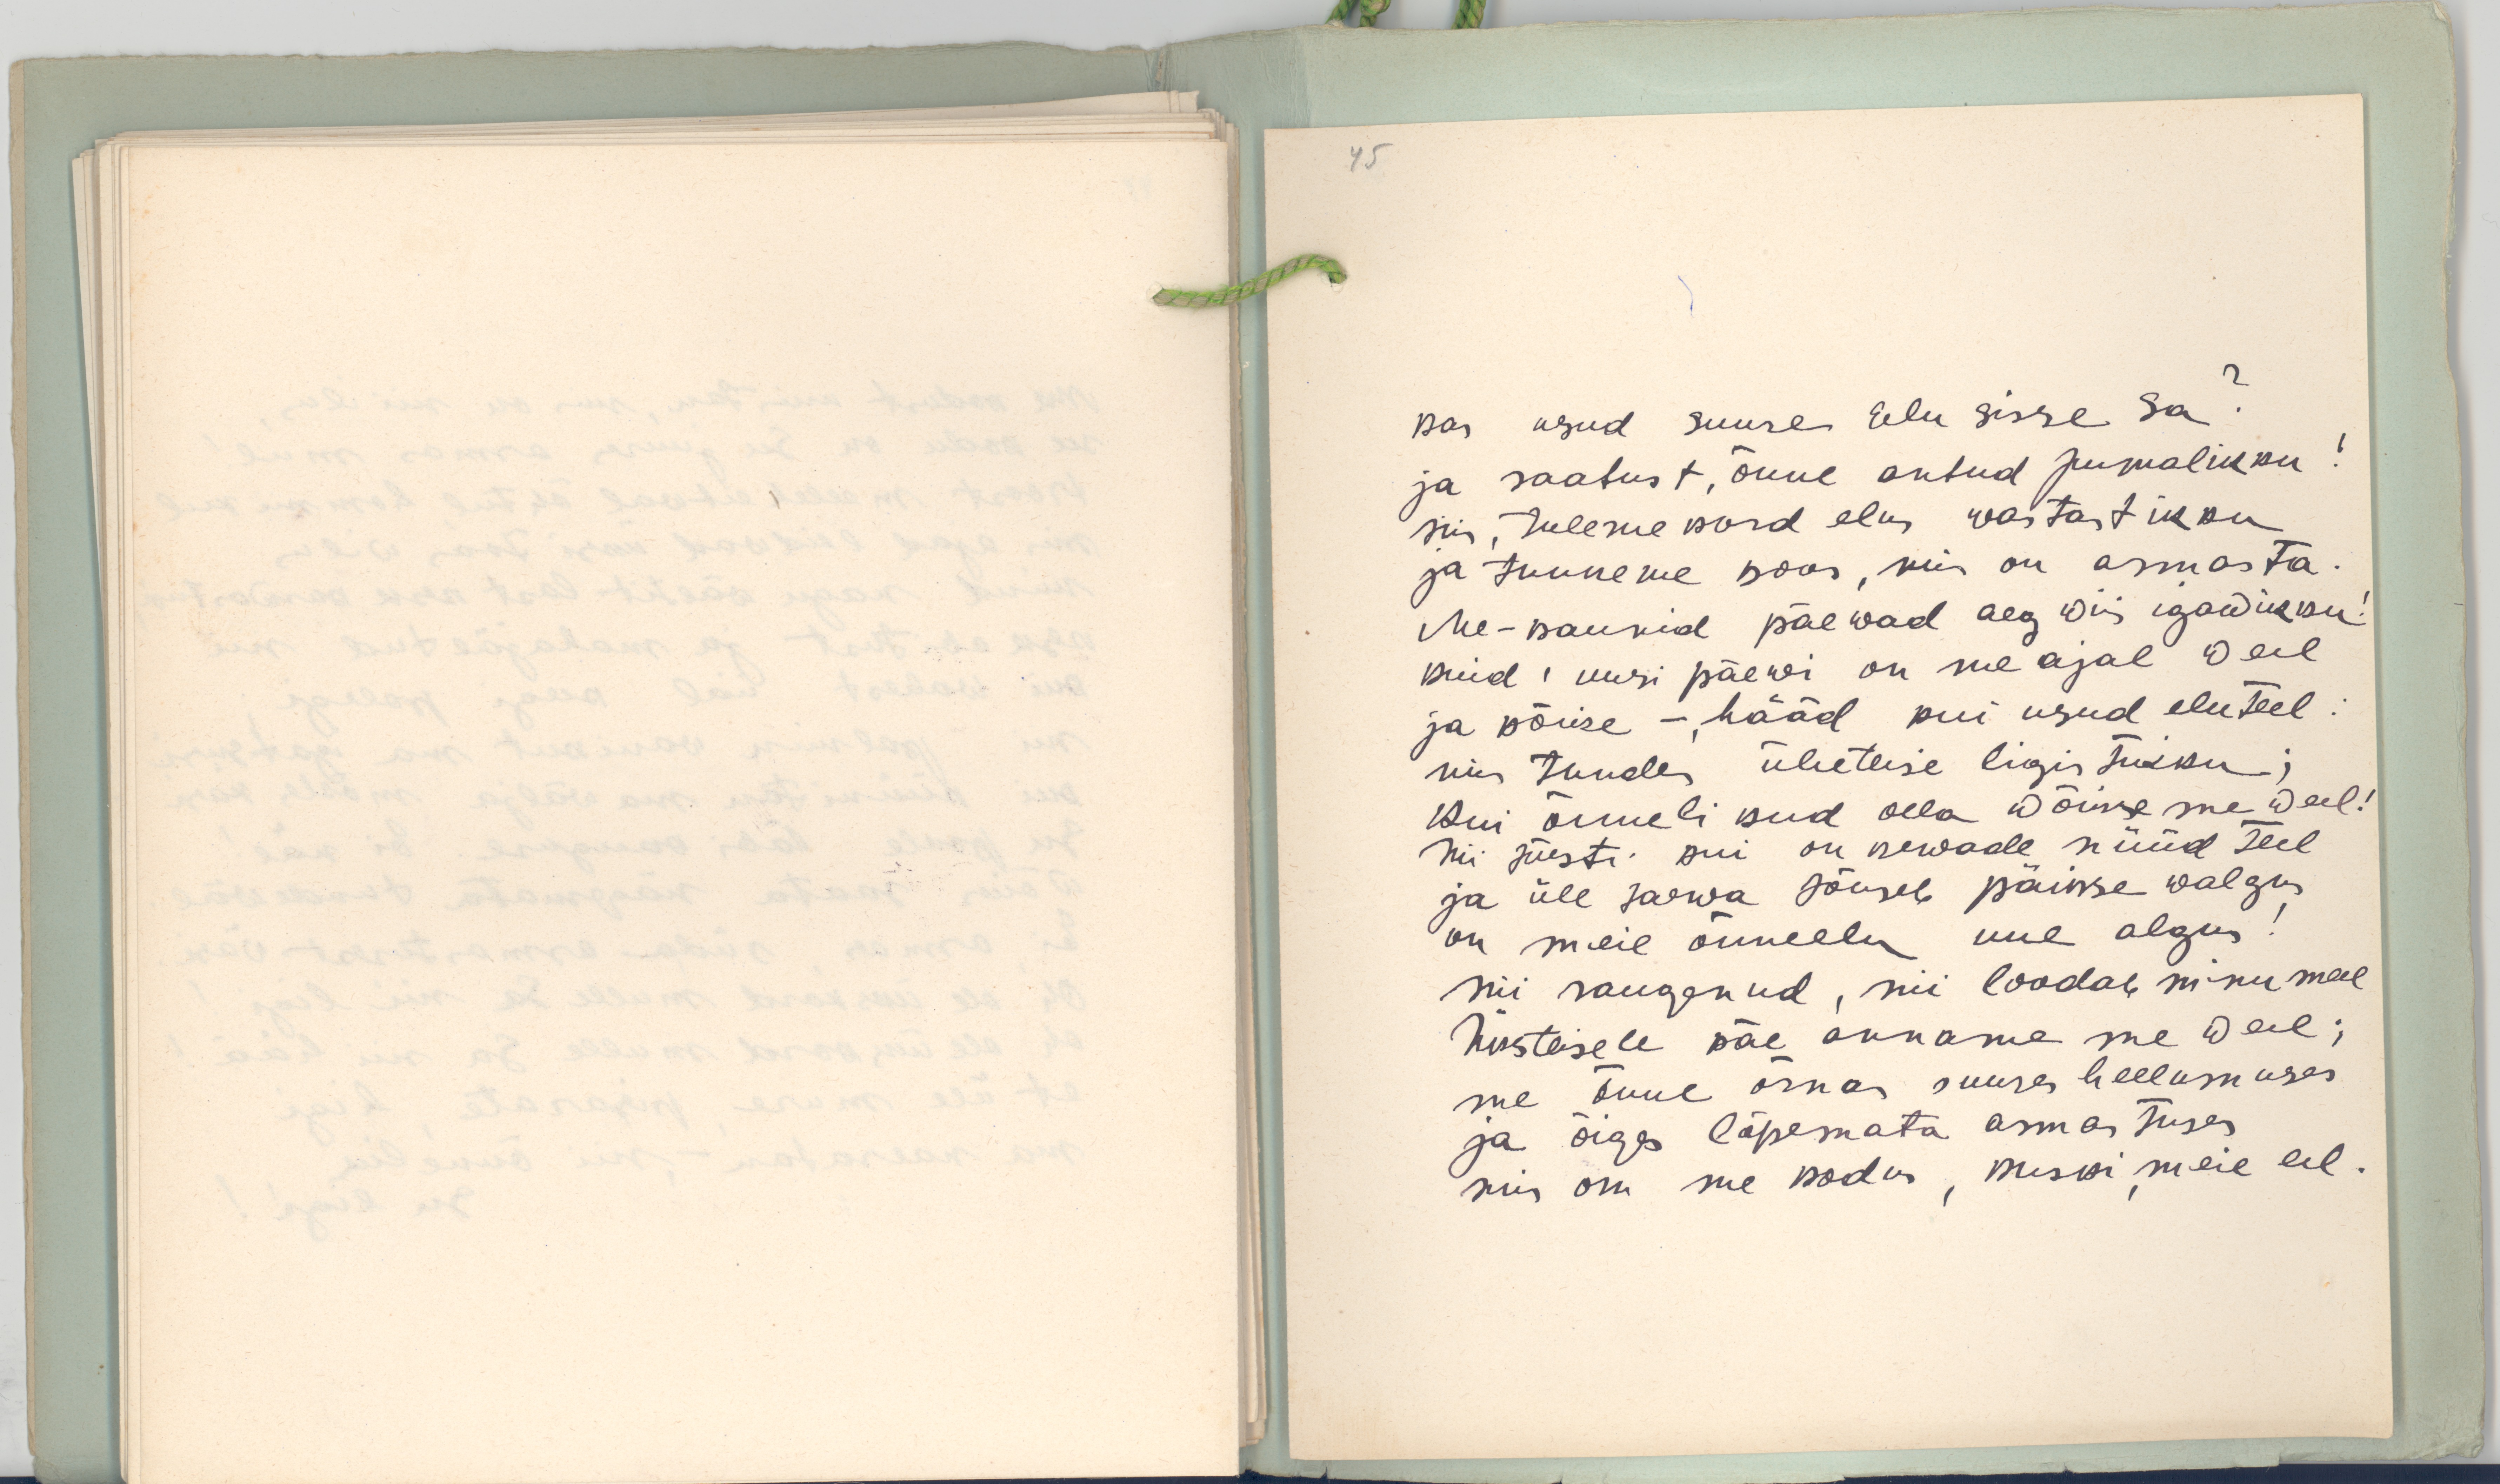 45
kas usud suures Eelu sisse Sa?
ja saatust, õnne antud jumalikku!
siis, tuleme kord elus wastastikku
ja tunneme koos, mis on armasta.
Me-kaunid päewad aeg wiis igawikku!
kuid, uusi päewi on me ajal weel
ja kõike –, hääd kui usud eluteel:
mis tundes üheteise ligistikku;
kui õnnelikud olla wõime me weel!
nii tõesti kui on kewade nüüd teel
ja üle sarwa tõuseb päikse walgus
on meie õnneelu uue algus!
nii raugenud, nii loodab minu meel
Üksteisele käe anname me weel;
me õnne õrnas suures hellumuses
ja õiges lõpemata armastuses
mis on me kodus, kuski, meie eel.